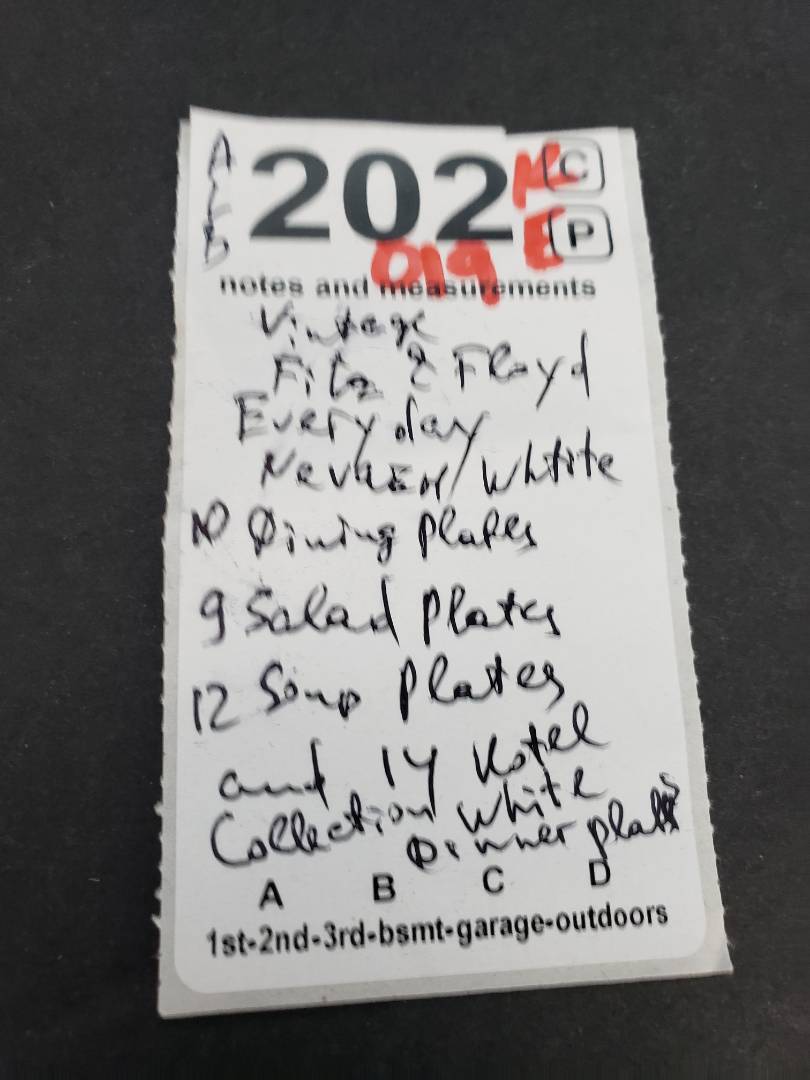 202
C
P
E
019
notes and measurements
Vintage
Fitz & Floyd
Everyday
White
10 Dining plates
9 Salad plates
12 Soup plates
and 14 Hotel
Collection White
Dinner plates
A B C D
1st-2nd-3rd-bsmt-garage-outdoors